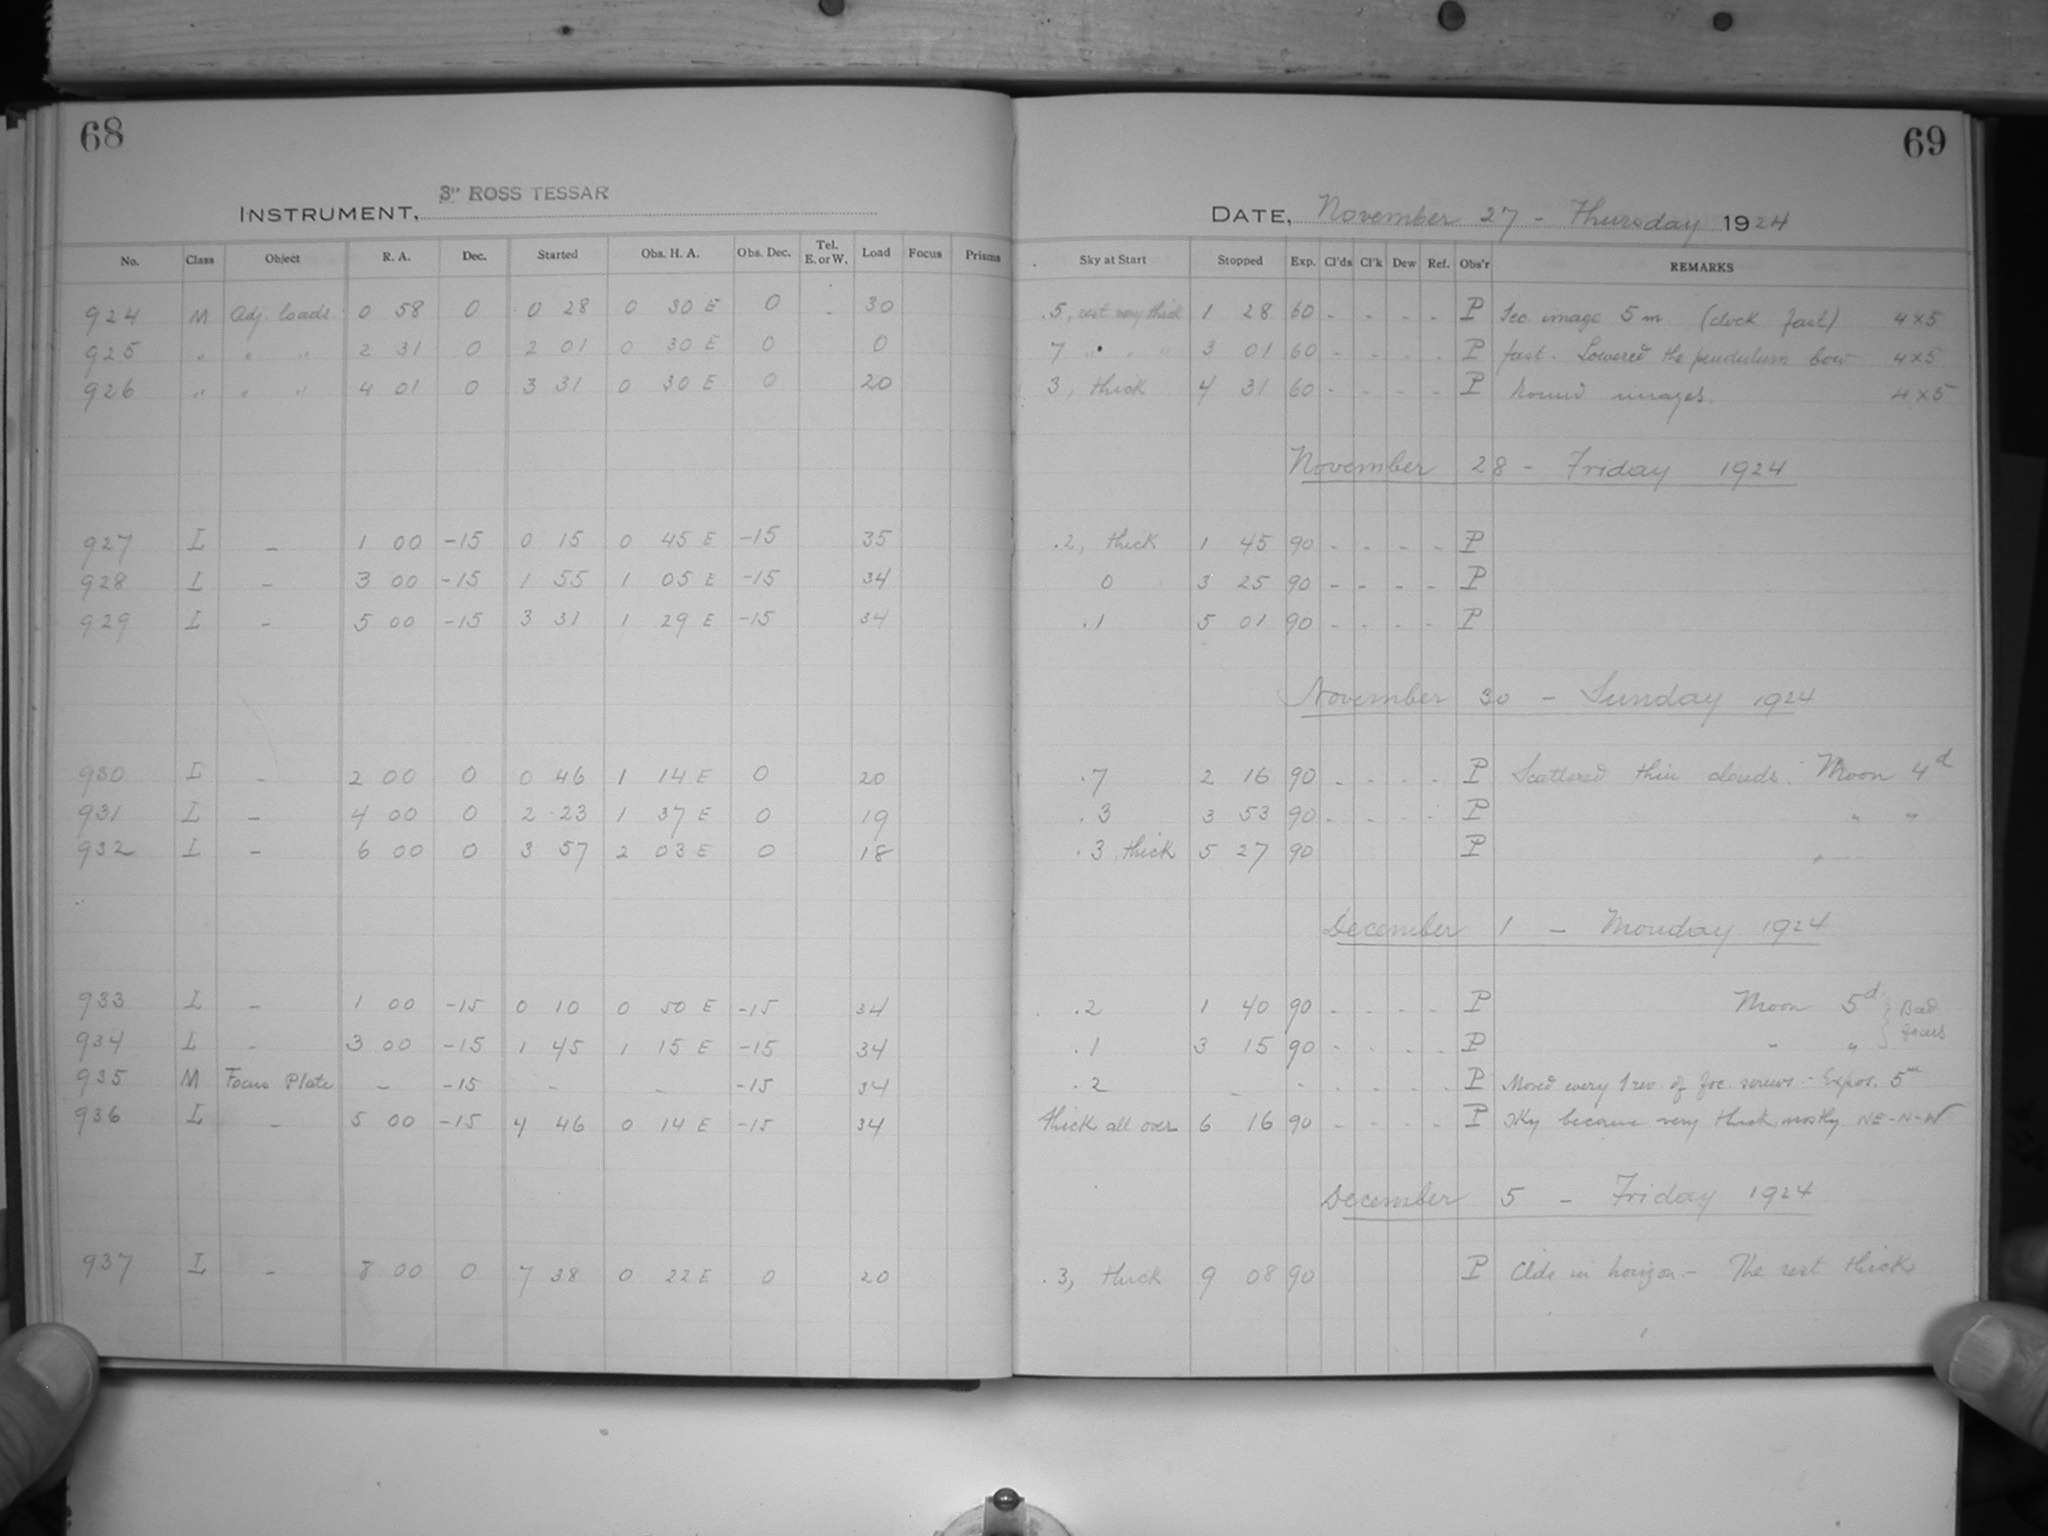 68
3" ROSS TESSAR
INSTRUMENT,
No. Class Object R. A. Dec. Started Obs. H. A. Obs. Dec. Tel. E. or W. Load Focus Prisms
924 M Adj. loads. 0 58 0 0 28 0 30 E 0 - 30
925 " " " 2 31 0 2 01 0 30 E 0 0
926 " " " 4 01 0 3 31 0 30 E 0 20
927 L - 1 00 -15 0 15 0 45 E -15 35
928 L - 3 00 -15 1 55 1 05 E -15 34
929 L - 5 00 -15 3 31 1 29 E -15 34
930 L - 2 00 0 0 46 1 14 E 0 20
931 L - 4 00 0 2 23 1 37 E 0 19
932 L - 6 00 0 3 57 2 03 E 0 18
933 L - 1 00 -15 0 10 0 50 E -15 34
934 L - 3 00 -15 1 45 1 15 E -15 34
935 M Focus Plate - -15 - - -15 34
936 L - 5 00 -15 4 46 0 14 E -15 34
937 L - 8 00 0 7 38 0 22 E 0 20
69
DATE, November 27 - Thursday 1924
Sky at Start Stopped Exp. Cl'ds Cl'k Dew Ref. Obs'r REMARKS
.5, rest very thick 1 28 60 - - - - P Sec. image 5 m (clock fast) 4x5
7 " " " 3 01 60 - - - - P fast. Lowered the pendulum bow 4x5
3, thick 4 31 60 - - - - P Round images. 4x5
November 28 - Friday 1924
.2, thick 1 45 90 - - - - P
0 3 25 90 - - - - P
.1 5 01 90 - - - - P
November 30 - Sunday 1924
.7 2 16 90 - - - - P Scattered thin clouds. Moon 4d
.3 3 53 90 - - - - P " "
.3 thick 5 27 90 P "
December 1 - Monday 1924
.2 1 40 90 - - - - P Moon 5d } Bad
.1 3 15 90 - - - - P " " } focus
.2 - - - - - P Moved every 1 rev. of foc. screws - Expos. 5m
thick all over 6 16 90 - - - - P Sky became very thick mostly NE-N-W
December 5 - Friday 1924
.3, thick 9 08 90 P Clds in horizon - The rest thick